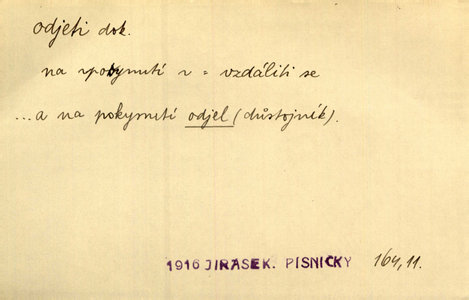 odjeti dok.
na pokynutí = vzdáliti se
...a na pokynutí odjel (důstojník).
1916 JIRÁSEK. PÍSNIČKY 164,11.